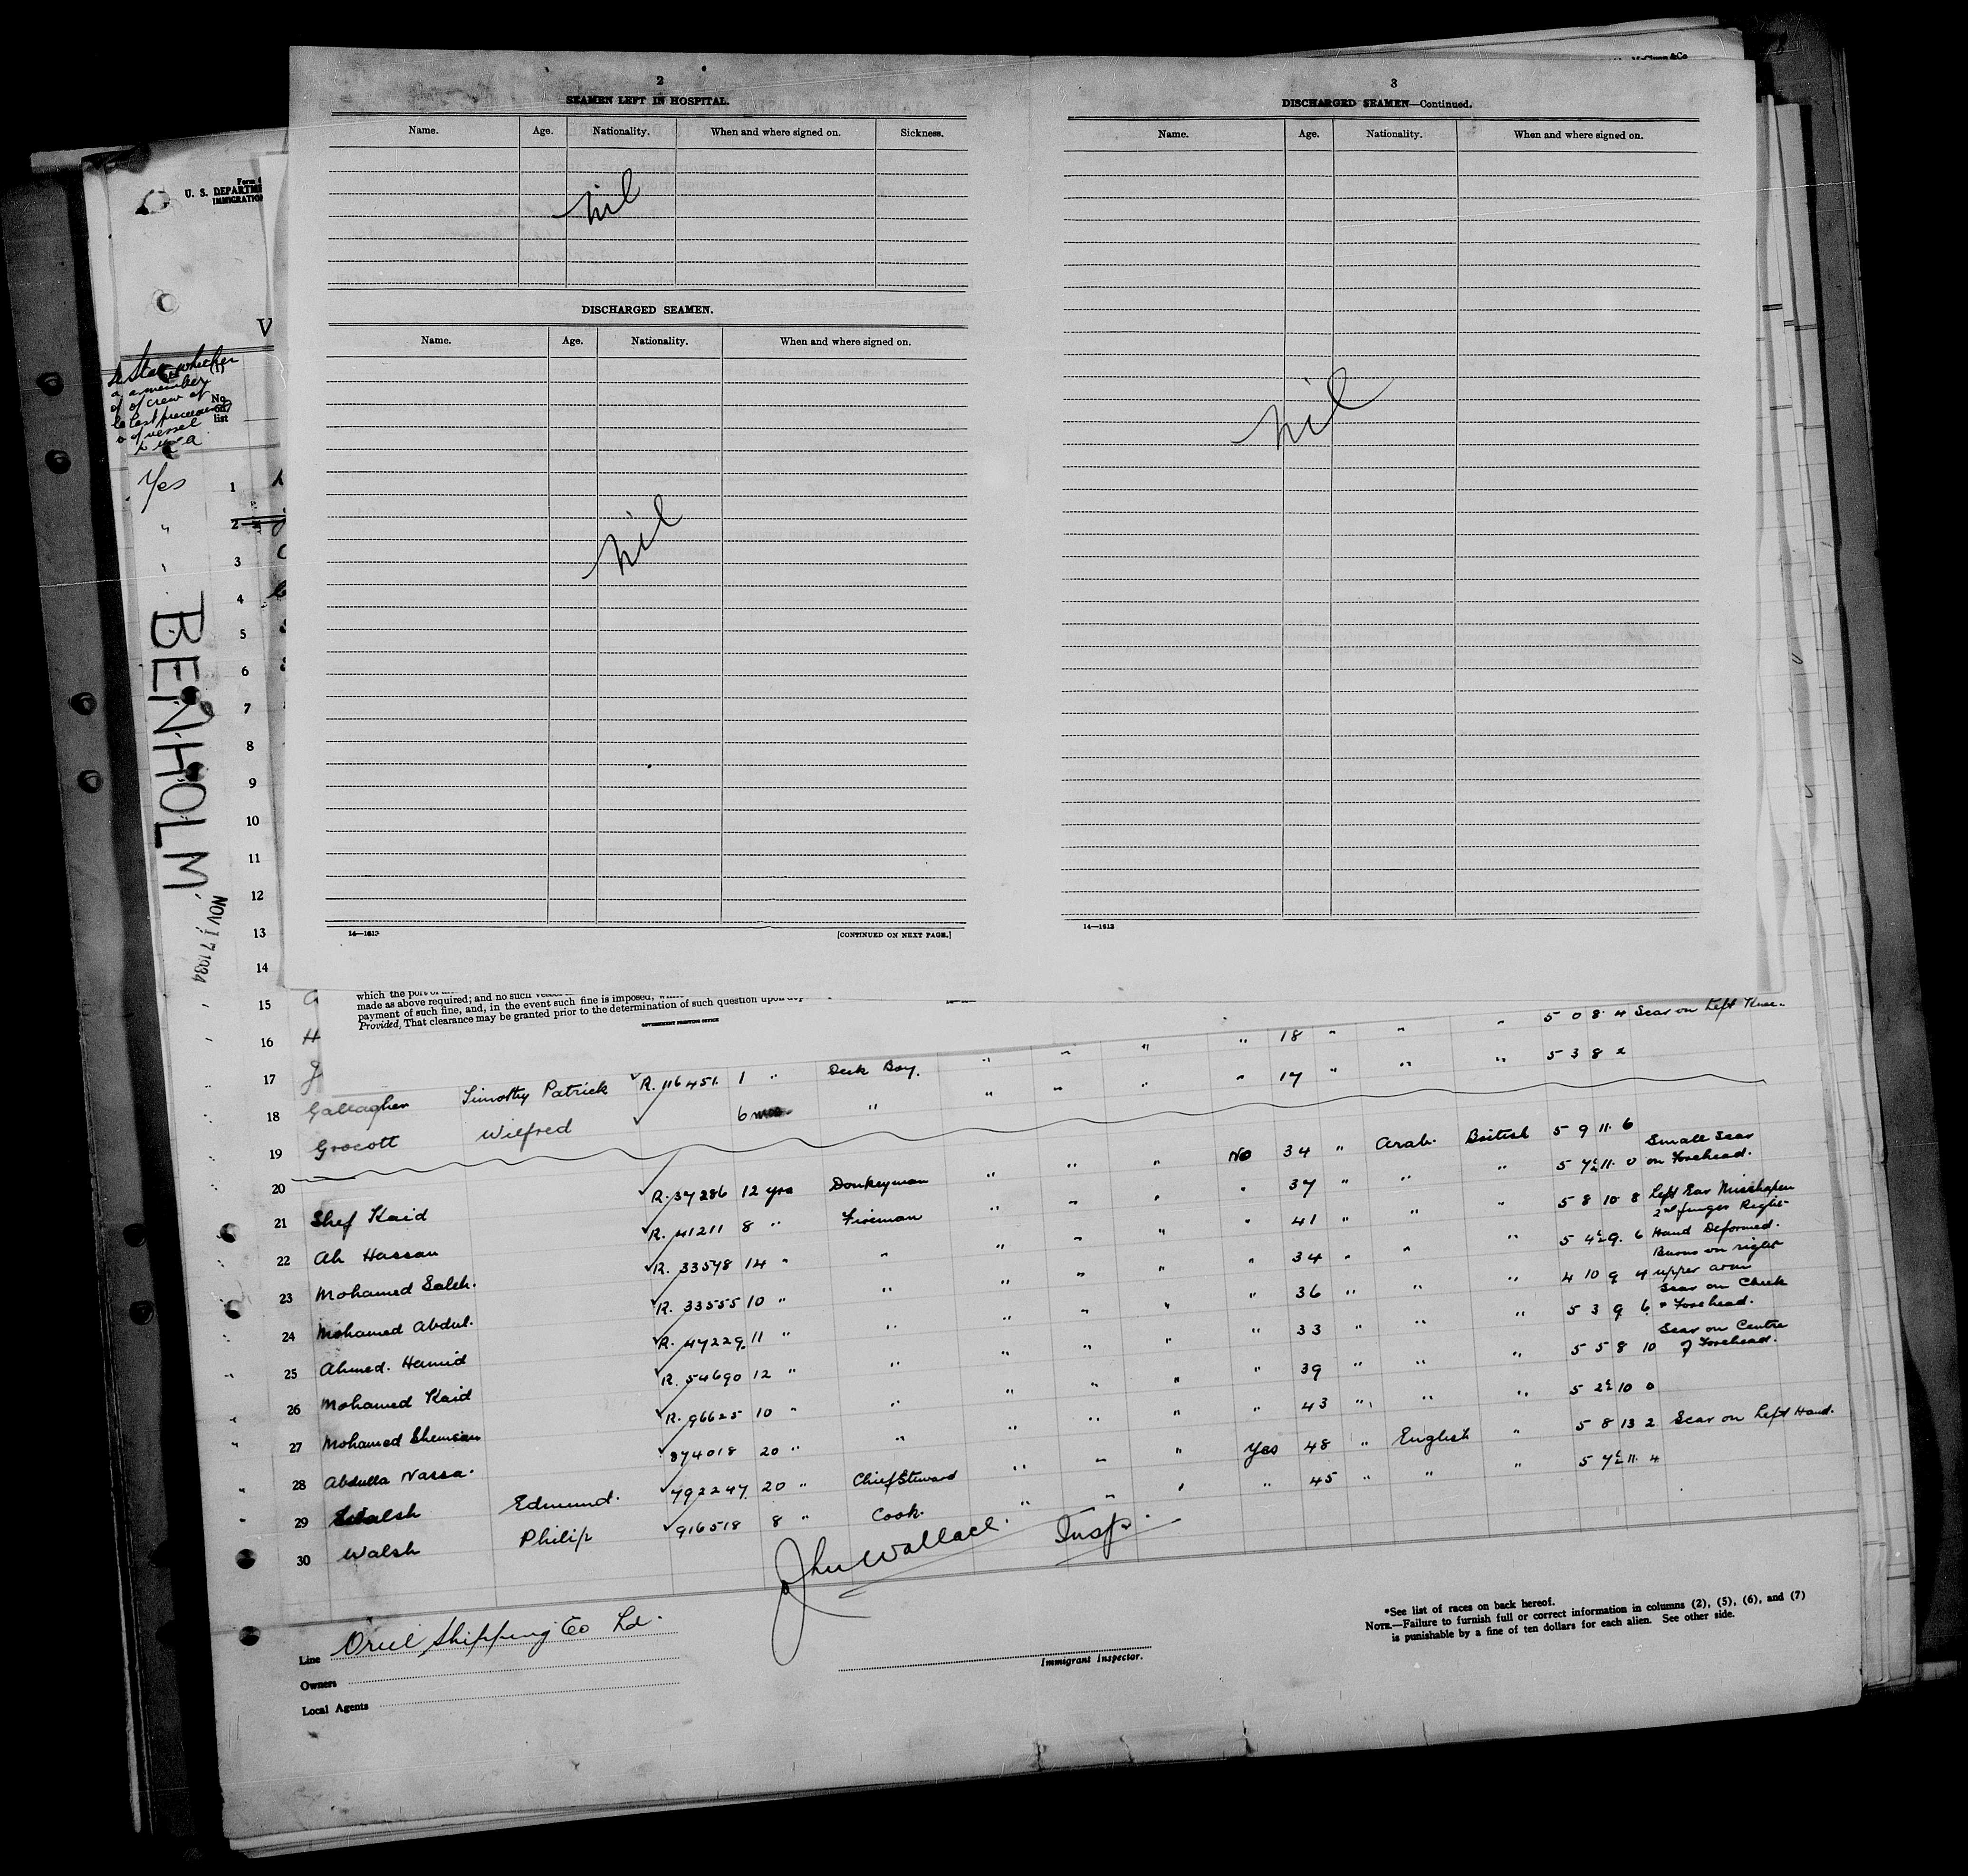 2
SEAMEN LEFT IN HOSPITAL.
Name. Age. Nationality. When and where signed on. Sickness.
nil
DISCHARGED SEAMEN.
Name. Age. Nationality. When and where signed on.
nil
14—1613 [CONTINUED ON NEXT PAGE.]
3
DISCHARGED SEAMEN—Continued.
Name. Age. Nationality. When and where signed on.
nil
14—1613
U. S. DEPARTME
IMMIGRATION
V
State whether
a member
of crew of
last
vessel
No
on
list
Yes 1
2
3
4
5
6
7
8
9
10
11
12
13
14
15
16
17
BENHOLM
NOV 17 1934
which the port of
made as above required; and no such vessel
payment of such fine, and, in the event such fine is imposed,
Provided, That clearance may be granted prior to the determination of such question upon
GOVERNMENT PRINTING OFFICE
" 18 " " " 5 0 8 4 Scar on Left Knee.
18 Gallagher Timothy Patrick R. 116451. 1 " Deck Boy. " " " " 17 " " " 5 3 8 2
19 Grocott Wilfred 6 mos "
20
No 34 " Arab. British 5 9 11. 6 Small Scar
on Forehead.
21 Shef Kaid R. 37286 12 yrs Donkeyman " " " " 37 " " " 5 7½ 11. 0
22 Ali Hassan R. 41211 8 " Fireman " " " " 41 " " " 5 8 10 8 Left Ear Misshapen
2nd finger Right
Hand Deformed.
23 Mohamed Saleh. R. 33578 14 " " " " " " 34 " " " 5 4½ 9. 6
Burns on right
upper arm
24 Mohamed Abdul. R. 33555 10 " " " " " " 36 " " " 4 10 9 4
Scar on Cheek
& Forehead.
25 Ahmed. Hamid R. 47229 11 " " " " " " 33 " " " 5 3 9 6
Scar on Centre
of Forehead.
26 Mohamed Kaid R. 54690 12 " " " " " " 39 " " " 5 5 8 10
27 Mohamed Shemsan R. 96625 10 " " " " " " 43 " " " 5 2½ 10 0
28 Abdulla Nassa. 874018 20 " " " " " Yes 48 " English " 5 8 13 2 Scar on Left Hand.
29 Walsh Edmund. 792247 20 " Chief Steward " " " " 45 " " " 5 7½ 11. 4
30 Walsh Philip 916518 8 " Cook. " " "
John Wallace. Insp.
Line Oriel Shipping Co Ld.
Owners
Local Agents
Immigrant Inspector.
*See list of races on back hereof.
NOTE.—Failure to furnish full or correct information in columns (2), (5), (6), and (7)
is punishable by a fine of ten dollars for each alien. See other side.